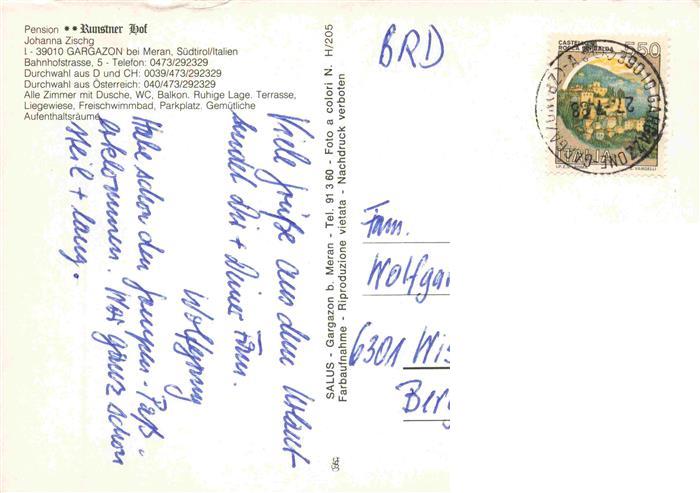 Pension ** Runstner Hof
Johanna Zischg
I - 39010 GARGAZON bei Meran, Südtirol/Italien
Bahnhofstrasse, 5 - Telefon: 0473/292329
Durchwahl aus D und CH: 0039/473/292329
Durchwahl aus Österreich: 040/473/292329
Alle Zimmer mit Dusche, WC, Balkon. Ruhige Lage. Terrasse,
Liegewiese, Freischwimmbad, Parkplatz. Gemütliche
Aufenthaltsräume
Viele Grüße aus dem Urlaub
sendet Dir + Deiner Fam.
Wolfgang
Habe schon den Jaufen-Paß
erklommen. War ganz schön
steil + lang.
SALUS - Gargazon b. Meran - Tel. 91 3 60 - Foto a colori N. H/205
Farbaufnahme - Riproduzione vietata - Nachdruck verboten
BRD
CASTELLO
ROCCA DI
550
ITALIA
39010 GARGAZZONE
Fam.
Wolfga
6301 Wis
Berg